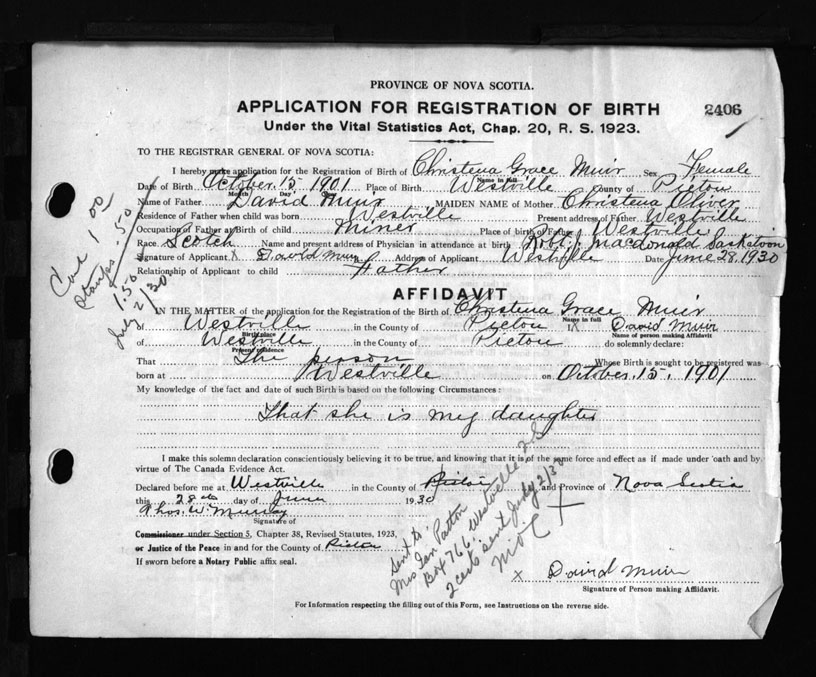 PROVINCE OF NOVA SCOTIA.
APPLICATION FOR REGISTRATION OF BIRTH 2406
Under the Vital Statistics Act, Chap. 20, R. S. 1923.
TO THE REGISTRAR GENERAL OF NOVA SCOTIA:
I hereby make application for the Registration of Birth of Christena Grace Muir Sex Female
Name in full
Date of Birth October 15 1901 Place of Birth Westville County of Pictou
Month Day
Name of Father David Muir MAIDEN NAME of Mother Christena Oliver
Residence of Father when child was born Westville Present address of Father Westville
Occupation of Father at Birth of child Miner Place of birth of Father Westville
Race Scotch Name and present address of Physician in attendance at birth Robt. J. Macdonald Saskatoon
Signature of Applicant X David Muir Address of Applicant Westville Date June 28, 1930
Relationship of Applicant to child Father
Cert 1 00
Stamps .50
1.50
July 2/30
AFFIDAVIT
IN THE MATTER of the application for the Registration of the Birth of Christena Grace Muir
Name in full
of Westville in the County of Pictou I X David Muir
Birth place Name of person making Affidavit
of Westville in the County of Pictou do solemnly declare:
Present residence
That The person Whose Birth is sought to be registered was
born at Westville on October, 15, 1901
My knowledge of the fact and date of such Birth is based on the following Circumstances:
That she is my daughter
I make this solemn declaration conscientiously believing it to be true, and knowing that it is of the same force and effect as if made under oath and by
virtue of The Canada Evidence Act.
Declared before me at Westville in the County of Pictou and Province of Nova Scotia
this 28th day of June 1930
Thos. W. Murray
Signature of
Commissioner under Section 5, Chapter 38, Revised Statutes, 1923,
or Justice of the Peace in and for the County of Pictou
If sworn before a Notary Public affix seal.
Sent to:
Mrs Ian Paxton
Box 766, Westville N.S.
2 certs sent July 2/30
X David Muir
Signature of Person making Affidavit.
For Information respecting the filling out of this Form, see Instructions on the reverse side.